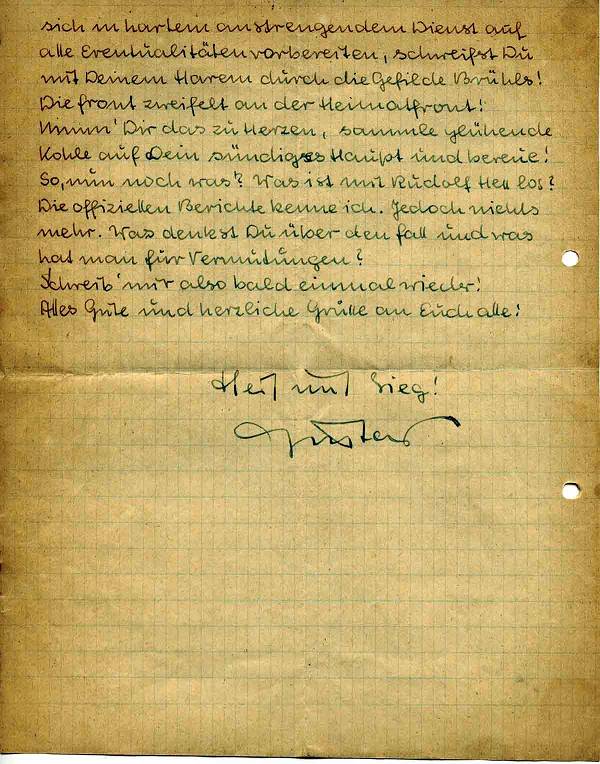 sich in hartem anstrengendem Dienst auf
alle Eventualitäten vorbereiten, schweifst Du
mit Deinem Harem durch die Gefilde Brühls!
Die Front zweifelt an der Heimatfront!
Nimm' Dir das zu Herzen, sammle glühende
Kohle auf Dein sündiges Haupt und bereue!
So, nun noch was? Was ist mit Rudolf Heß los?
Die offiziellen Berichte kenne ich. Jedoch nichts
mehr. Was denkst Du über den Fall und was
hat man für Vermutungen?
Schreib' mir also bald einmal wieder!
Alles Gute und herzliche Grüße an Euch alle!
Heil und Sieg!